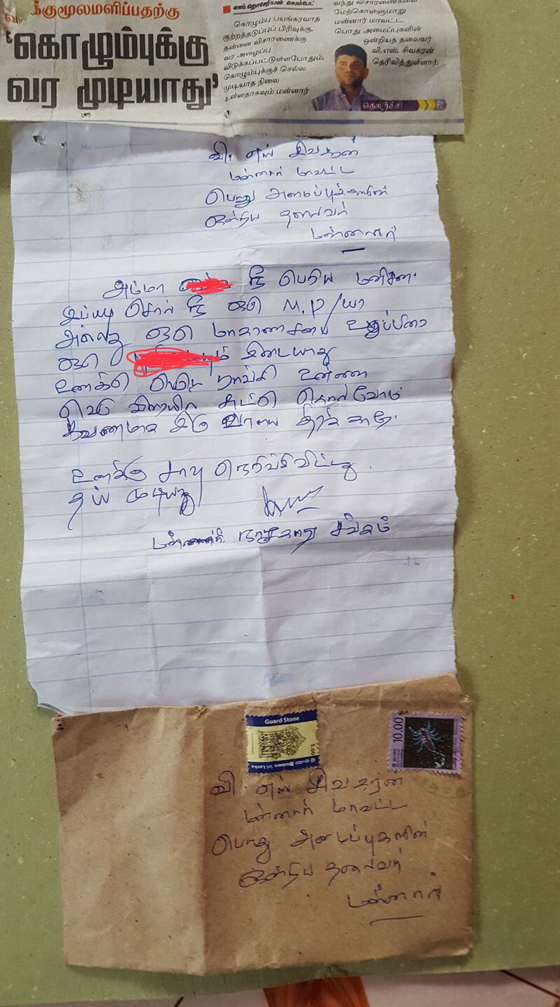 க்குமூலமளிப்பதற்கு
‘கொழும்புக்கு
வர முடியாது’
கொழும்பு பயங்கரவாத
குற்றத்தடுப்புப் பிரிவுக்கு
தன்னை விசாரணைக்கு
வர அழைப்பு
விடுக்கப்பட்டுள்ளபோதும்,
கொழும்புக்குச் செல்ல
முடியாத நிலை
உள்ளதாகவும் மன்னார்
வந்து விசாரணைகளை
மேற்கொள்ளுமாறு
மன்னார் மாவட்ட
பொது அமைப்புகளின்
ஒன்றியத் தலைவர்
வி.எஸ்.சிவகரன்
தெரிவித்துள்ளார்.
தொடர்ச்சி
வி. எஸ் சிவகரன்
மன்னார் மாவட்ட
பொது அமைப்புகளின்
ஒன்றிய தலைவர்
மன்னார்
அம்மா நீ பெரிய மனிசன்
இப்படி சொல் நீ ஒரு M.P/யா
அல்லது ஒரு மாகாணசபை உறுப்பினர்
ஒரு கிடையாது
உனக்கு வெடி உன்னை
சுட்டு கொல்வோம்
கவனமாக இரு வாயை திறக்காதே
உனக்கு சாவு நெருங்கிவிட்டது.
தப்ப முடியாது
மன்னார் சங்கம்
Guard Stone
5.00
இலங்கை Sri Lanka
10.00
வி. எஸ் சிவகரன்
மன்னார் மாவட்ட
பொது அமைப்புகளின்
ஒன்றிய தலைவர்
மன்னார்